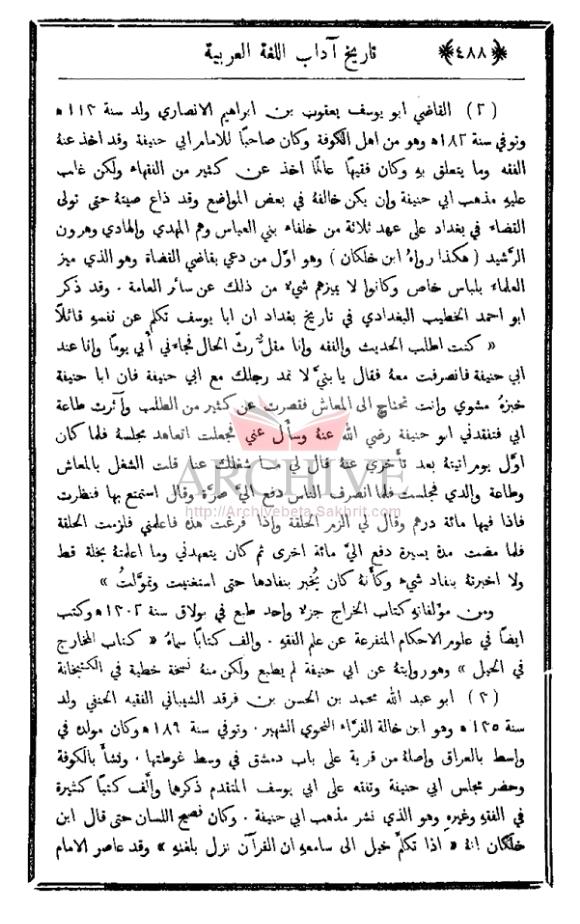 ﴿٤٨٨﴾ تاريخ آداب اللغة العربية
(٢) القاضي ابو يوسف يعقوب بن ابراهيم الانصاري ولد سنة ١١٣ ه
وتوفي سنة ١٨٢ ه وهو من اهل الكوفة وكان صاحبًا للامام ابي حنيفة وقد اخذ عنهُ
الفقه وما يتعلق بهِ وكان فقيهًا عالمًا اخذ عن كثير من الفقهاء ولكن غلب
عليهِ مذهب ابي حنيفة وإن يكن خالفهُ في بعض المواضع وقد ذاع صيتهُ حتى تولى
القضاء في بغداد على عهد ثلاثة من خلفاء بني العباس وهم المهدي والهادي وهرون
الرشيد (هكذا رواهُ ابن خلكان) وهو اوّل من دعي بقاضي القضاة وهو الذي ميز
العلماء بلباس خاص وكانوا لا يميزهم شيء من ذلك عن سائر العامة . وقد ذكر
ابو احمد الخطيب البغدادي في تاريخ بغداد ان ابا يوسف تكلم عن نفسهِ قائلاً
« كنت اطلب الحديث والفقه وانا مقلٌّ رثّ الحال فجاءني أبي يومًا وانا عند
ابي حنيفة فانصرفت معهُ فقال يا بنيَّ لا تمد رجلك مع ابي حنيفة فان ابا حنيفة
خبزهُ مشوي وانت تحتاج الى المعاش فقصرت عن كثير من الطلب وآثرت طاعة
ابي فتفقدني ابو حنيفة رضي الله عنهُ وسأل عني فجعلت اتعاهد مجلسهُ فلما كان
اوّل يوم اتيتهُ بعد تأخري عنهُ قال لي ما شغلك عنا قلت الشغل بالمعاش
وطاعة والدي فجلست فلما انصرف الناس دفع اليَّ صرَّة وقال استمتع بها فنظرت
فاذا فيها مائة درهم وقال لي الزم الحلقة وإذا فرغت هذه فاعلمني فلزمت الحلقة
فلما مضت مدة يسيرة دفع اليَّ مائة اخرى ثم كان يتعهدني وما اعلمتهُ بخلة قط
ولا اخبرتهُ بنفاد شيء وكأنهُ كان يُخبر بنفادها حتى استغنيت وتموَّلتُ »
ومن مؤلفاتهِ كتاب الخراج جزء واحد طبع في بولاق سنة ١٣٠٢ ه وكتب
ايضًا في علوم الاحكام المتفرعة عن علم الفقه . والف كتابًا سماهُ « كتاب المخارج
في الحيل » وهو روايتهُ عن ابي حنيفة لم يطبع ولكن منهُ نسخة خطية في الكتبخانة
(٣) ابو عبد الله محمد بن الحسن بن فرقد الشيباني الفقيه الحنفي ولد
سنة ١٣٥ ه وهو ابن خالة الفرَّاء النحوي الشهير . وتوفي سنة ١٨٩ ه وكان مولده في
واسط بالعراق وإصلهُ من قرية على باب دمشق في وسط غوطتها . ونشأ بالكوفة
وحضر مجلس ابي حنيفة وتفقه على ابي يوسف المتقدم ذكرهما والَّف كتبًا كثيرة
في الفقهِ وغيرهِ وهو الذي نشر مذهب ابي حنيفة . وكان فصيح اللسان حتى قال ابن
خلّكان انهُ « اذا تكلّم خيل الى سامعهِ ان القرآن نزل بلغتهِ » وقد عاصر الامام
ARCHIVE
http://Archivebeta.Sakhrit.com